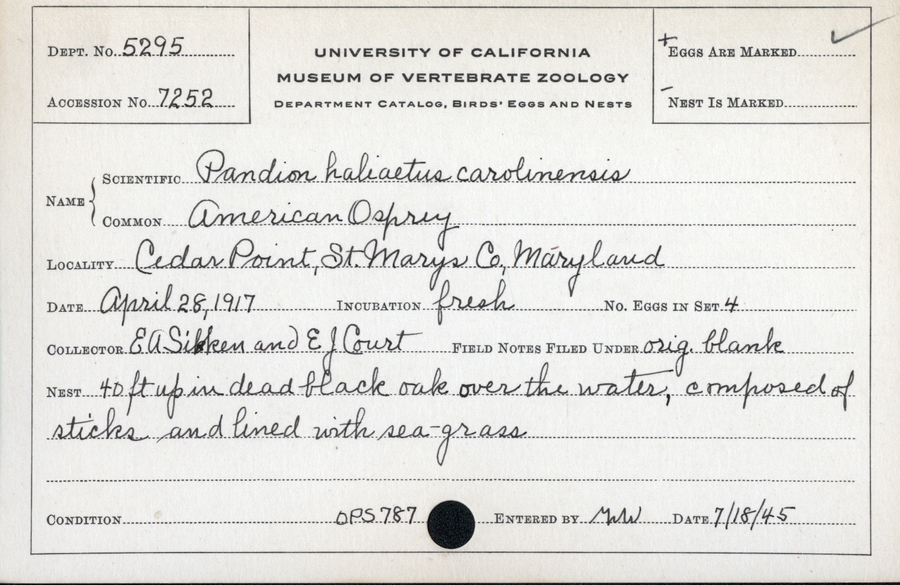 DEPT. NO. 5295
ACCESSION NO. 7252
UNIVERSITY OF CALIFORNIA
MUSEUM OF VERTEBRATE ZOOLOGY
DEPARTMENT CATALOG, BIRDS' EGGS AND NESTS
+ EGGS ARE MARKED ✓
- NEST IS MARKED
NAME { SCIENTIFIC Pandion haliaetus carolinensis
COMMON American Osprey
LOCALITY Cedar Point, St. Marys Co., Maryland
DATE April 28, 1917 INCUBATION fresh NO. EGGS IN SET 4
COLLECTOR E A and E J Court FIELD NOTES FILED UNDER orig. blank
NEST 40 ft up in dead black oak over the water, composed of
sticks and lined with sea-grass
CONDITION OPS787 ENTERED BY DATE 7/18/45